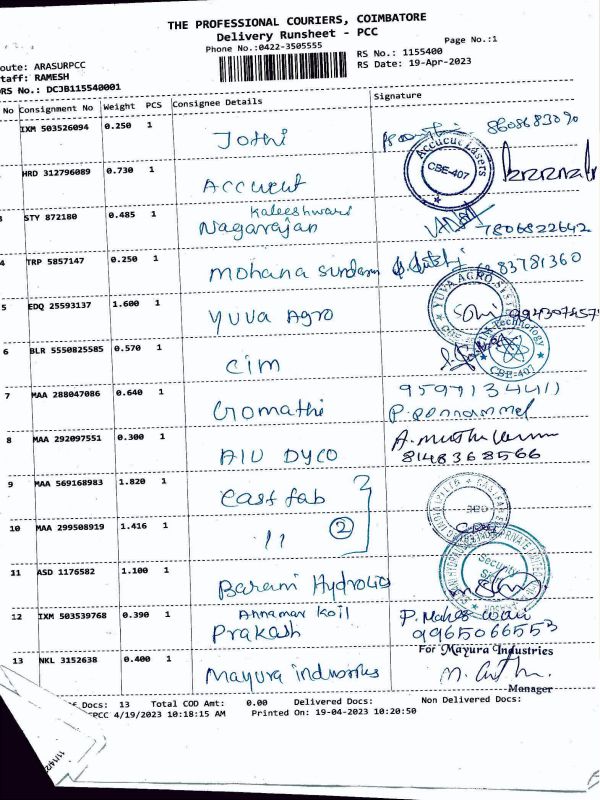 THE PROFESSIONAL COURIERS, COIMBATORE
Delivery Runsheet - PCC
Phone No:0422-3505555
Page No.:1
oute: ARASURPCC
RS No.: 1155400
taff: RAMESH
RS Date: 19-Apr-2023
RS No.: DCJB115540001
No Consignment No Weight PCS Consignee Details Signature
IXM 503526094 0.250 1 Jothi 8608683090
HRD 312796089 0.730 1 Accucut Accucut Lasers CBE-407
Kaleeshwari
3 STY 872180 0.485 1 Nagarajan 7806822642
4 TRP 5857147 0.250 1 Mohana Sundaram 83781360
5 EDQ 25593137 1.600 1 Yuva Agro YUVA AGRO
6 BLR 5550825585 0.570 1 Cim Technology CBE-407
7 MAA 288047086 0.640 1 Gomathi 9597134411
P. Ponnammal
8 MAA 292097551 0.300 1 AIU DYCO
8148368566
9 MAA 569168983 1.820 1 East fab
10 MAA 299508919 1.416 1 11 2
11 ASD 1176582 1.100 1 Barani Hydrolic Security
Annamar Koil
12 IXM 503539768 0.390 1 Prakash P. Maheswari
9965066553
For Mayura Industries
13 NKL 3152638 0.400 1 Mayura industries
Manager
f Docs: 13 Total COD Amt: 0.00 Delivered Docs: Non Delivered Docs:
PCC 4/19/2023 10:18:15 AM Printed On: 19-04-2023 10:20:50